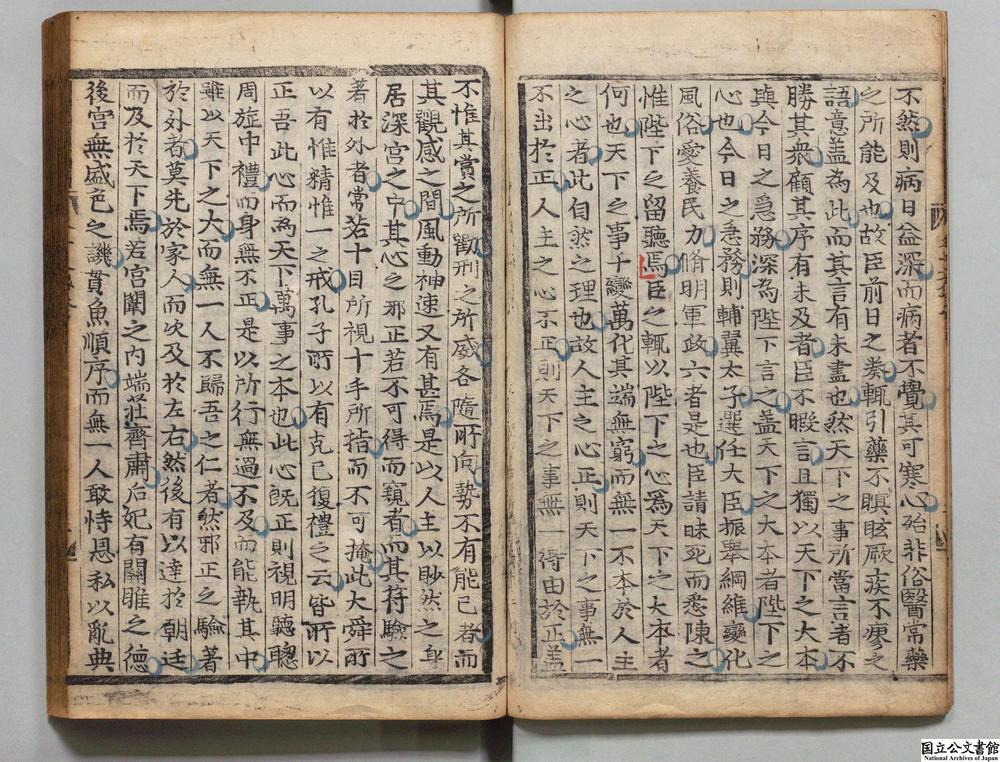 不然則病日益深而病者不覺其可寒心殆非俗醫常藥
之所能及也故臣前日之奏輒引藥不瞑眩厥疾不瘳之
語意盖為此而其言有未盡也然天下之事所當言者不
勝其衆顧其序有未及者臣不暇言且獨以天下之大本
與今日之急務深為陛下言之盖天下之大本者陛下之
心也今日之急務則輔翼太子選任大臣振舉綱維變化
風俗愛養民力脩明軍政六者是也臣請昧死而悉陳之
惟陛下之留聽焉臣之輒以陛下之心為天下之大本者
何也天下之事千變萬化其端無窮而無一不本於人主
之心者此自然之理也故人主之心正則天下之事無一
不出於正人主之心不正則天下之事無一得由於正盖
不惟其賞之所勸刑之所威各隨所向勢不有能已者而
其觀感之間風動神速又有甚焉是以人主以眇然之身
居深宮之中其心之邪正若不可得而窺者而其符驗之
著於外者常若十目所視十手所指而不可掩此大舜所
以有惟精惟一之戒孔子所以有克己復禮之云皆所以
正吾此心而為天下萬事之本也此心既正則視明聽聰
周旋中禮而身無不正是以所行無過不及而能執其中
雖以天下之大而無一人不歸吾之仁者然邪正之驗著
於外者莫先於家人而次及於左右然後有以達於朝廷
而及於天下焉若宮闈之內端莊齊肅后妃有關雎之德
後宮無盛色之譏貫魚順序而無一人敢恃恩私以亂典
国立公文書館
National Archives of Japan